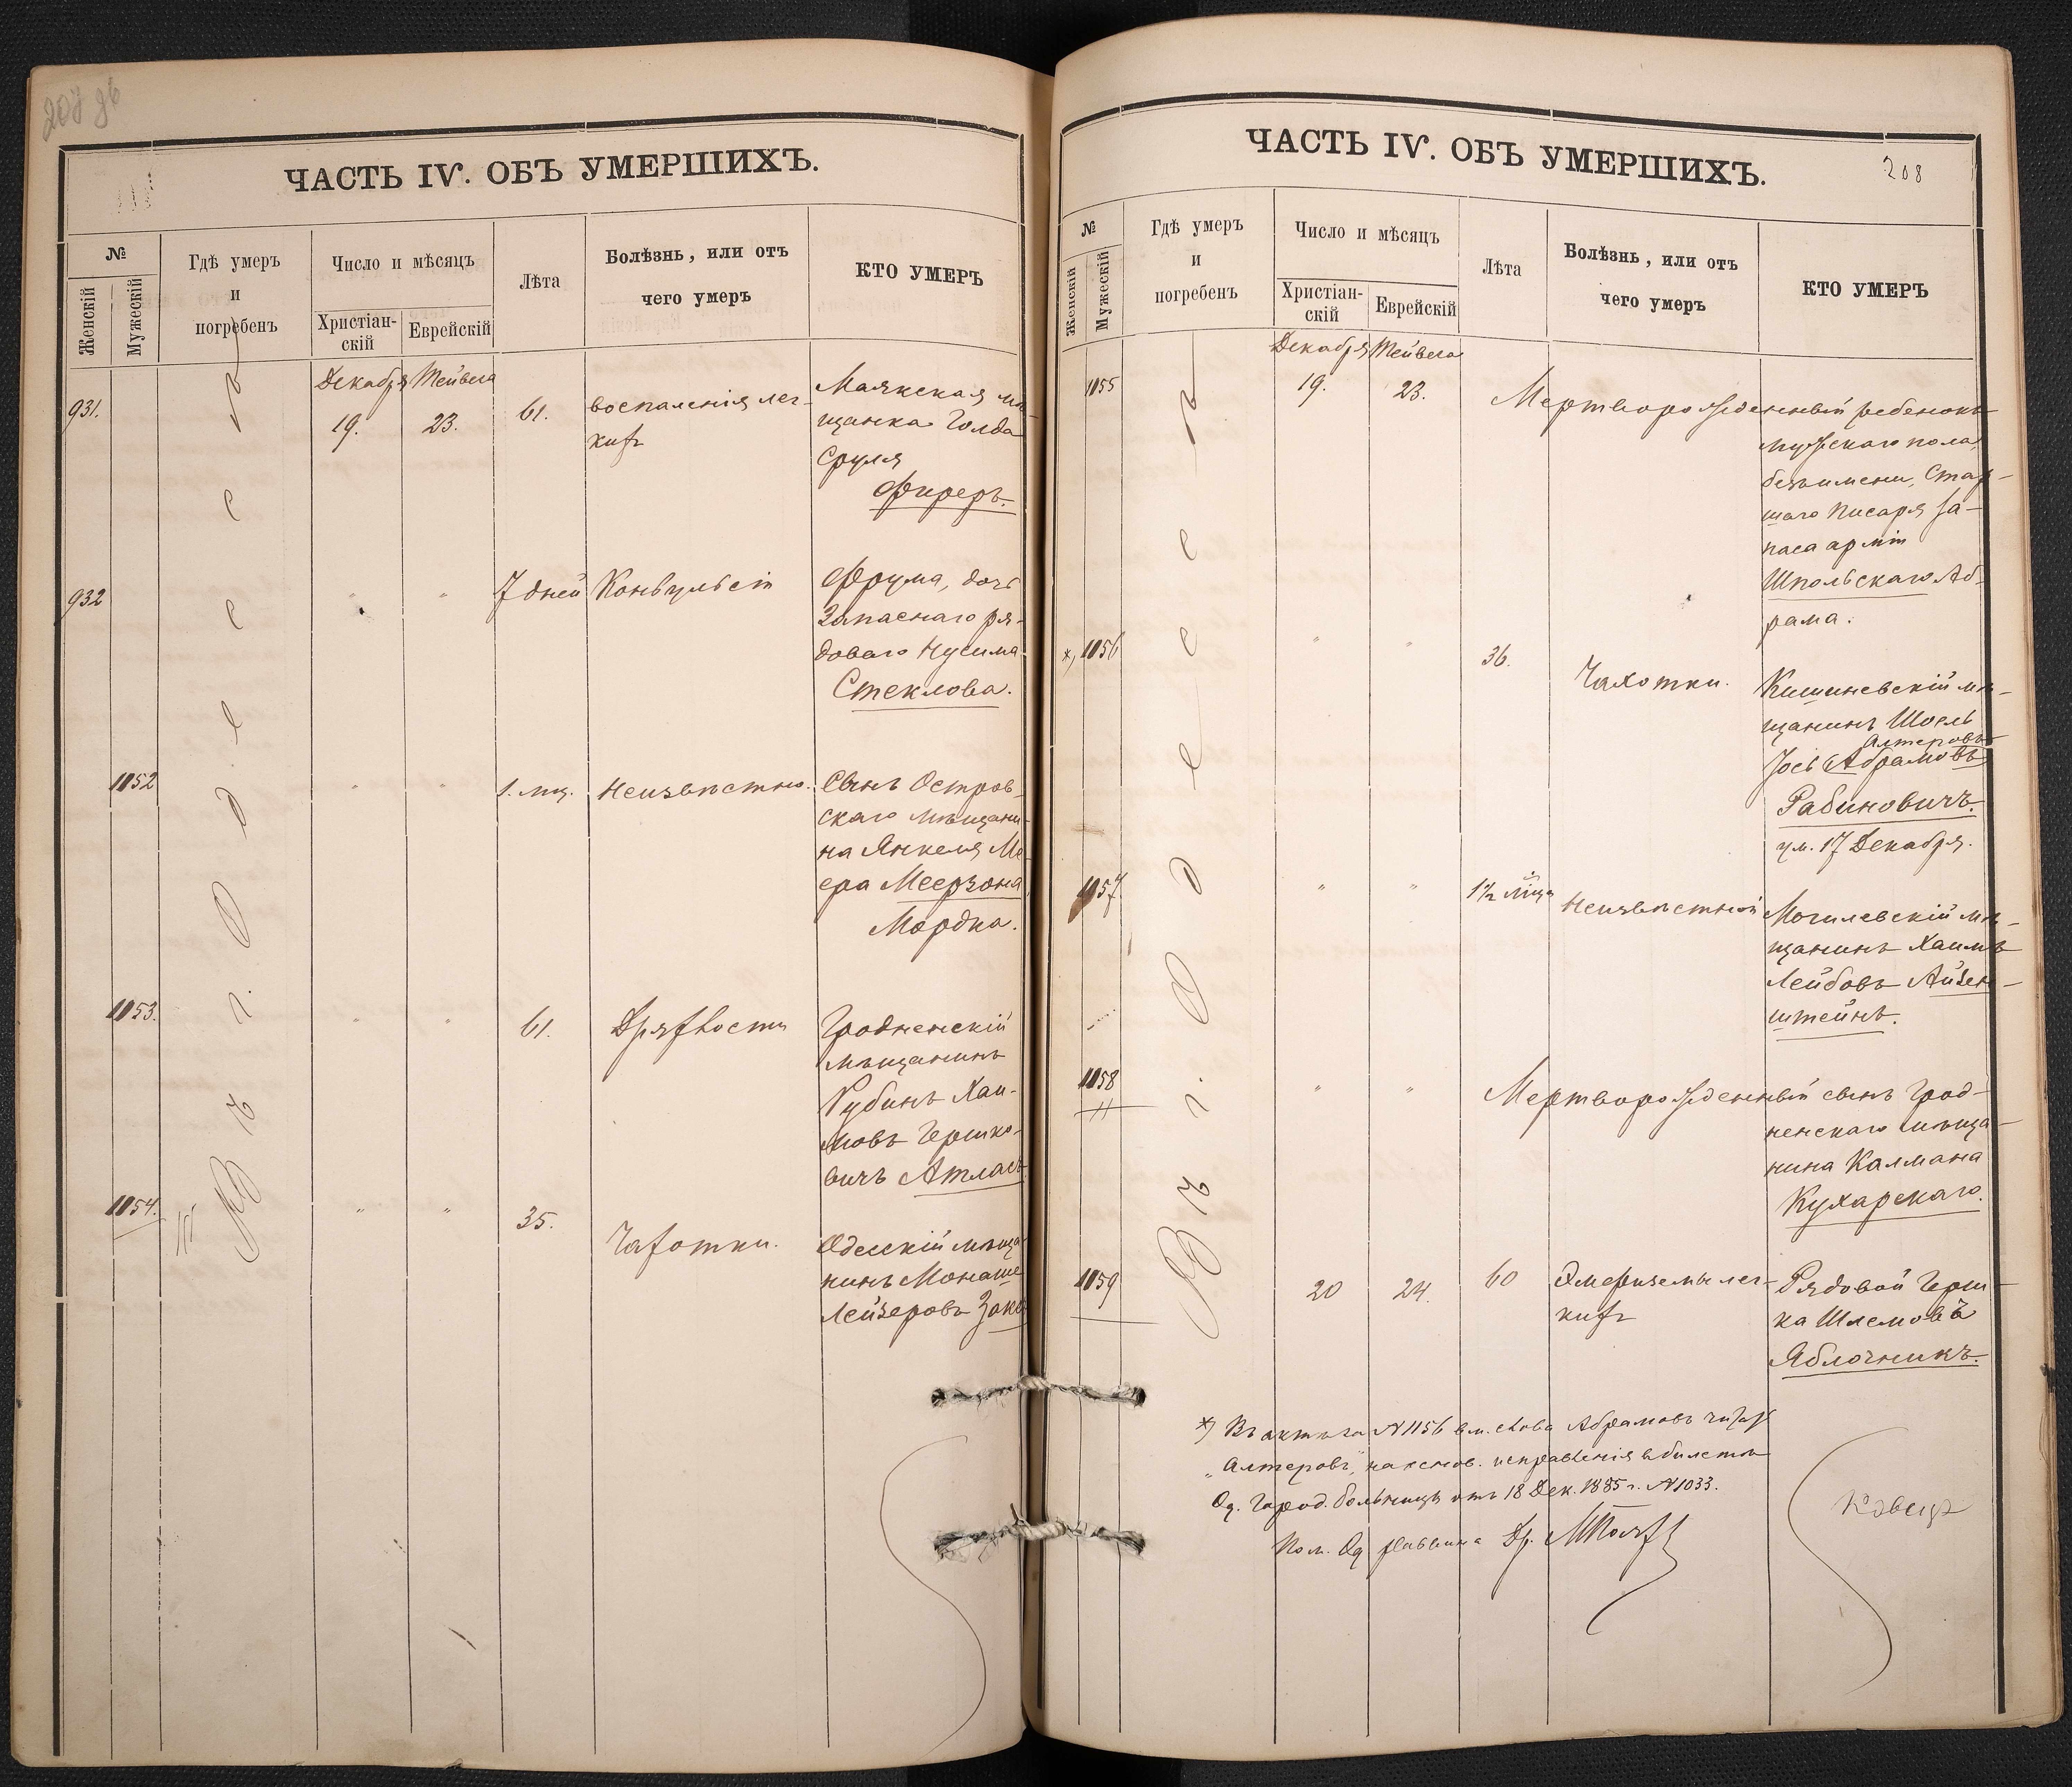 207 об
ЧАСТЬ IV. ОБЪ УМЕРШИХЪ.
№
Женскій
Мужескій
Гдѣ умеръ
и
погребенъ
Число и мѣсяцъ
Христіан-
скій
Еврейскій
Лѣта
Болѣзнь, или отъ
чего умеръ
КТО УМЕРЪ
Въ г. Одессѣ
Декабря Тейвеса
931.
19.
23.
61.
воспаленія лег-
кихъ
Маякская мѣ-
щанка Голда
Сруля
Фиреръ.
932
"
"
7 дней
Конвульсіи
Фрума, дочь
Запаснаго ря-
доваго Нусима
Стеклова.
1152
"
"
1. мц.
Неизвѣстно.
Сынъ Остров-
скаго мѣщани-
на Янкеля Ме-
ера Меерзона
Мордка.
1153.
"
"
61.
Дряхлости
Гродненскій
мѣщанинъ
Рубинъ Хаи-
мовъ Гершко-
вичъ Атласъ
1154.
"
"
35.
Чахотки.
Одесскій мѣща-
нинъ Монаше
Лейзеровъ Заксъ
ЧАСТЬ IV. ОБЪ УМЕРШИХЪ.
208
№
Женскій
Мужескій
Гдѣ умеръ
и
погребенъ
Число и мѣсяцъ
Христіан-
скій
Еврейскій
Лѣта
Болѣзнь, или отъ
чего умеръ
КТО УМЕРЪ
Въ г. Одессѣ
Декабря Тейвеса
1155
19.
23.
Мертворожденный ребенокъ
мужскаго пола,
безъ имени, Стар-
шаго Писаря за-
паса арміи
Шпольскаго Аб-
рама.
*) 1156
"
"
36.
Чахотки.
Кишиневскій мѣ-
щанинъ Шоель
Алтеровъ
Іосъ Абрамовъ
Рабиновичъ.
ум. 17 Декабря.
1157
"
"
1½ мѣца
Неизвѣстной
Могилевскій мѣ-
щанинъ Хаимъ
Лейбовъ Айзен-
штейнъ.
1158
"
"
Мертворожденный сынъ Грод-
ненскаго мѣща-
нина Калмана
Кухарскаго.
1159
20
24.
60
Эмфиземы лег-
кихъ
Рядовой Герш-
ка Шлемовъ
Яблочникъ.
*) Въ актѣ за № 1156 вм. слова Абрамовъ читать
"Алтеровъ", на основ. исправленія въ билетѣ
Од. Город. больницы отъ 18 Дек. 1885 г. № 1033.
Пом. Од раввина Др.